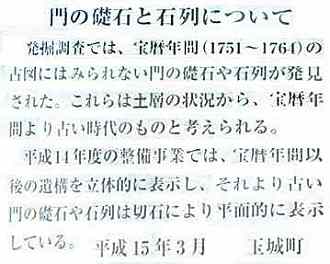 門の礎石と石列について
発掘調査では、宝暦年間(1751～1764)の
古図にはみられない門の礎石や石列が発見
された。これらは土層の状況から、宝暦年
間より古い時代のものと考えられる。
平成14年度の整備事業では、宝暦年間以
後の遺構を立体的に表示し、それより古い
門の礎石や石列は切石により平面的に表示
している。 平成15年3月 玉城町